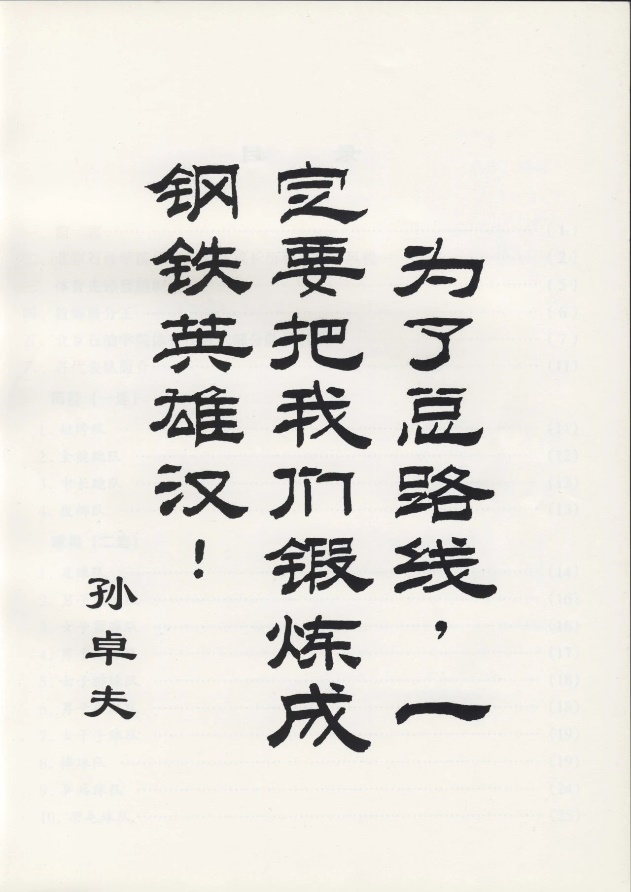 为了总路线，一
定要把我们锻炼成
钢铁英雄汉！
孙卓夫